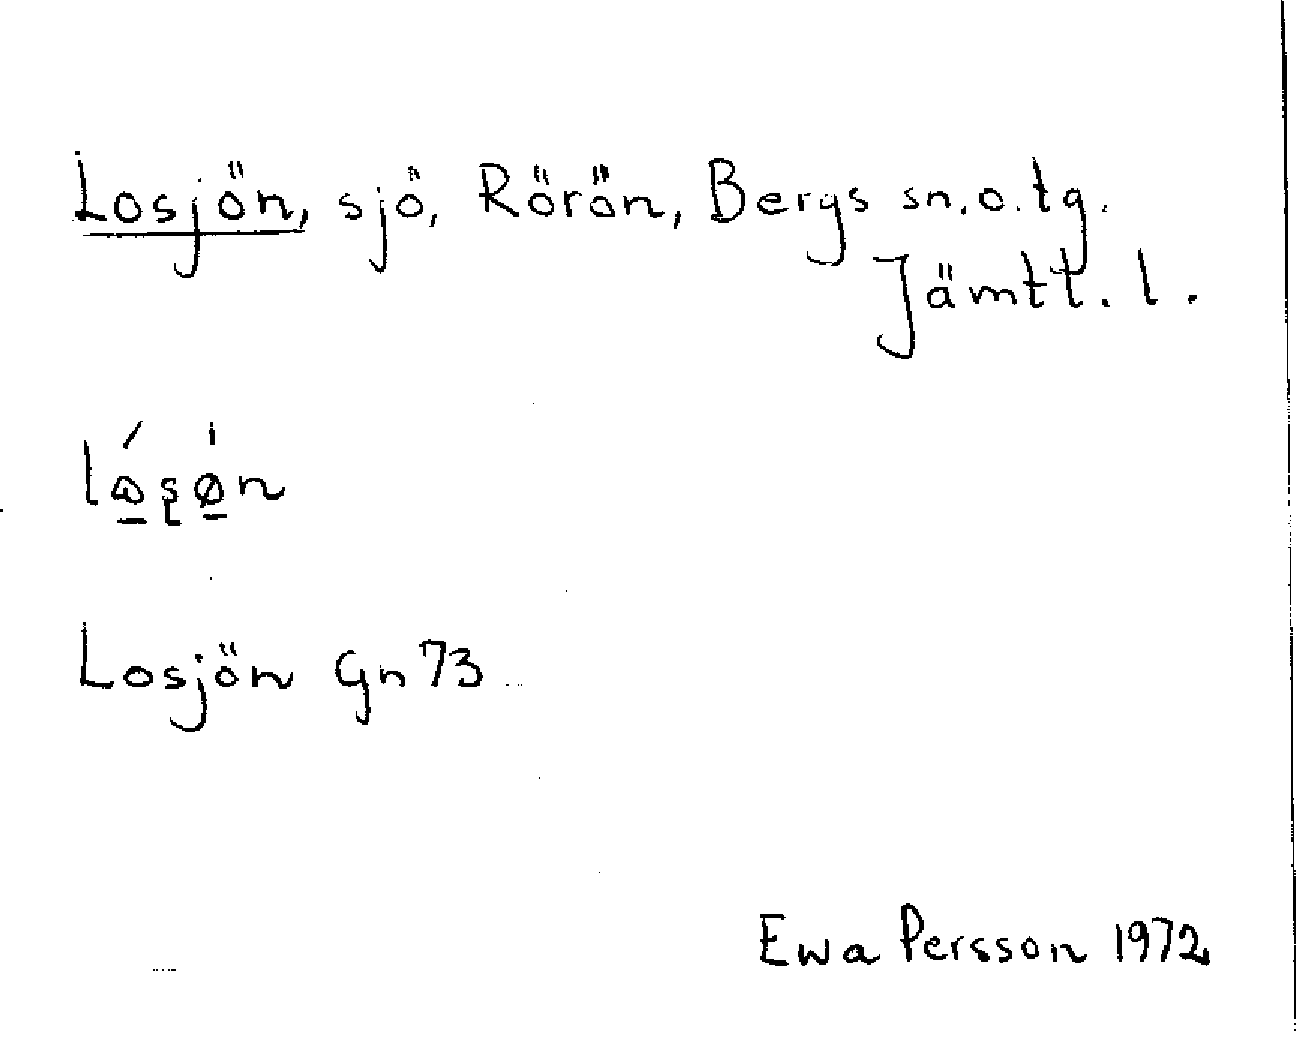 Losjön, sjö, Rörön, Bergs sn. o. tg.
Jämtl. l.
Losjön Gn 73
Ewa Persson 1972